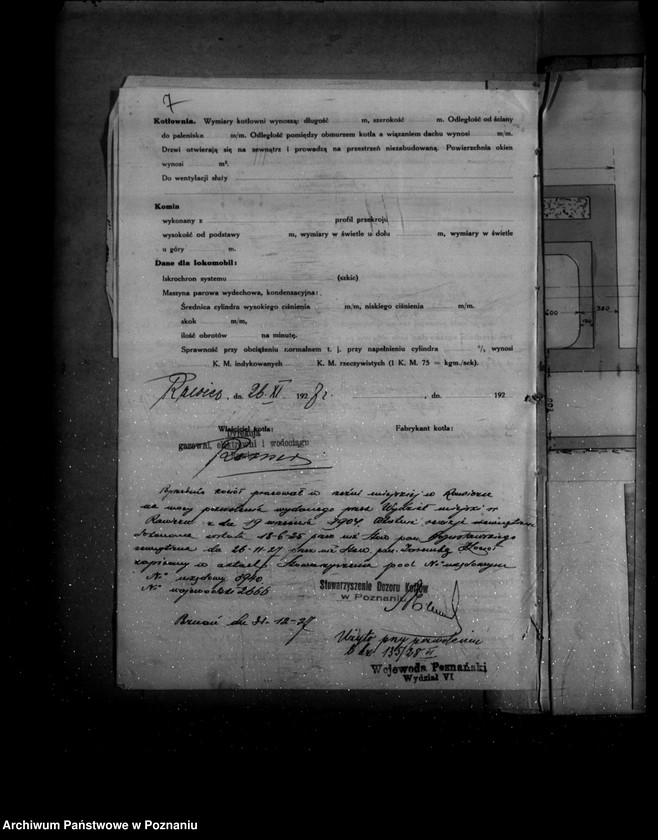 7
Kotłownia. Wymiary kotłowni wynoszą: długość m, szerokość m. Odległość od ściany
do paleniska m/m. Odległość pomiędzy obmurzem kotła a wiązaniem dachu wynosi m/m.
Drzwi otwierają się na zewnątrz i prowadzą na przestrzeń niezabudowaną. Powierzchnia okien
wynosi m².
Do wentylacji służy
Komin
wykonany z profil przekroju
wysokość od podstawy m, wymiary w świetle u dołu m, wymiary w świetle
u góry m.
Dane dla lokomobil:
Iskrochron systemu (szkic)
Maszyna parowa wydechowa, kondensacyjna:
Średnica cylindra wysokiego ciśnienia m/m, niskiego ciśnienia m/m.
skok m/m,
ilość obrotów na minutę.
Sprawność przy obciążeniu normalnem t. j. przy napełnieniu cylindra %, wynosi
K. M. indykowanych K. M. rzeczywistych (1 K. M. 75 = kgm./sek).
Rawicz, dn. 26. XI. 1928 r. , dn. 192
Właściciel kotła: Fabrykant kotła:
Dyrekcja
gazowni, elektrowni i wodociągu
kocioł pracował w rzeźni miejskiej w Rawiczu
na mocy pozwolenia wydanego przez Wydział miejski w
Rawiczu z dn 19 września 1904 rewizję wewnętrzną
18-6-25 przez
zewnętrzną dn 26-11-27 przez
zapisany w aktach Stowarzyszenia pod № urzędowym
№ urzędowy 8940
№ wojewódzki 2666
Stowarzyszenie Dozoru Kotłów
w Poznaniu
dn 31-12-27
Użyto przy pozwoleniu
L. dz. 135/28 VI
Wojewoda Poznański
Wydział VI
600
380
Archiwum Państwowe w Poznaniu